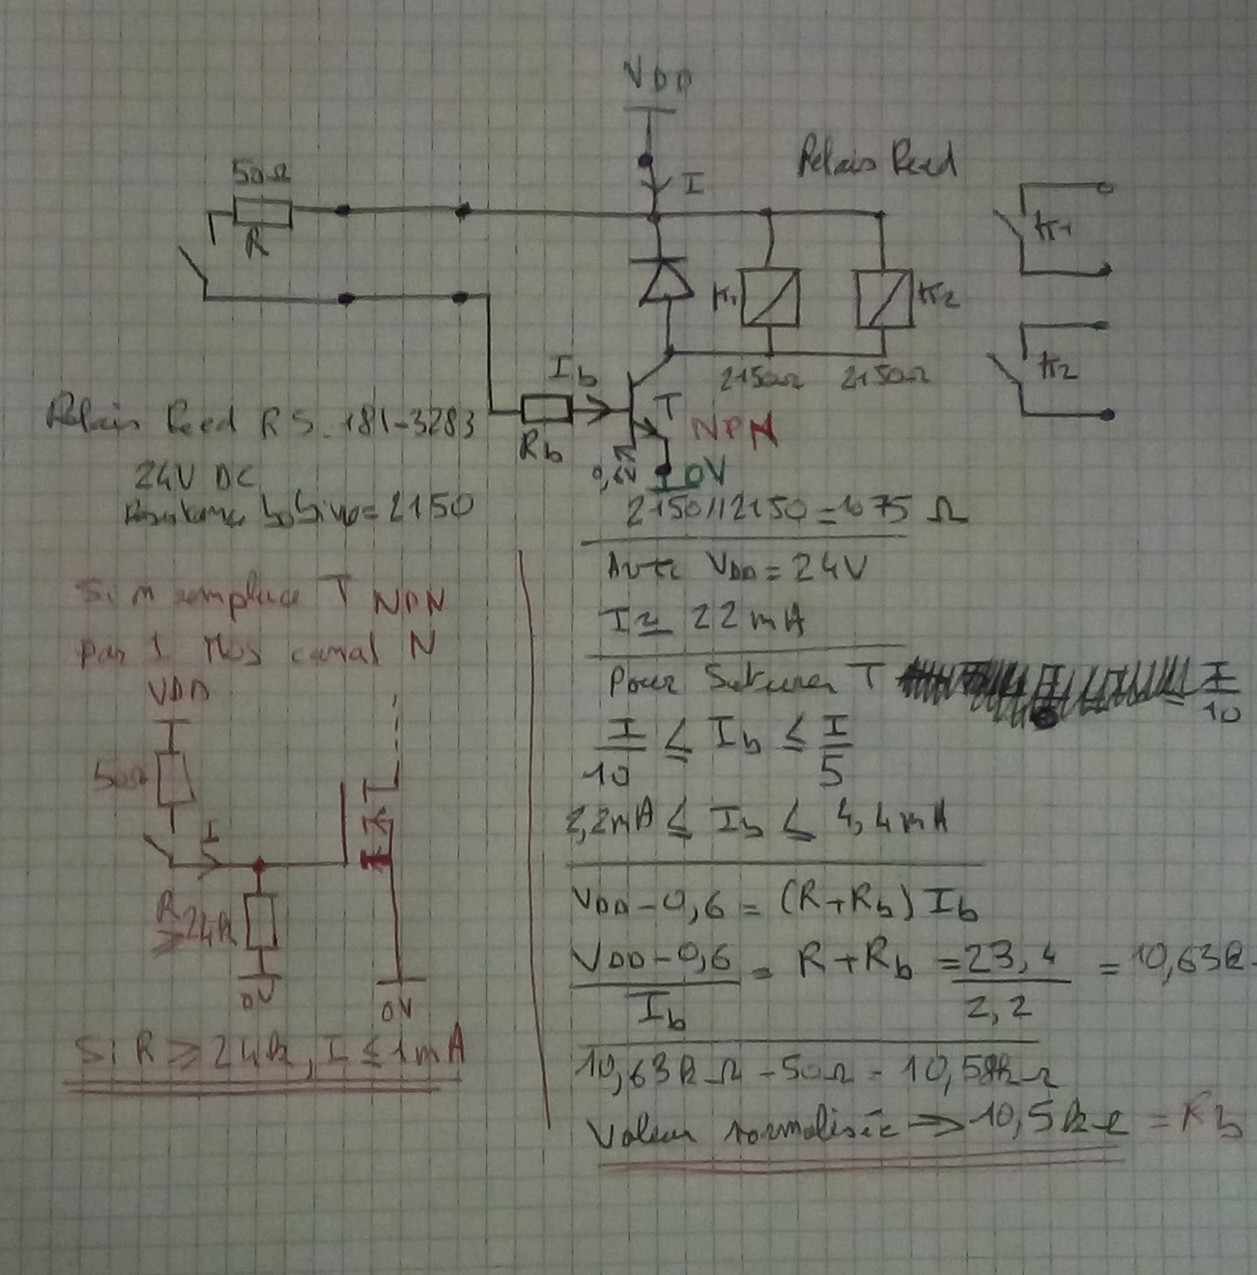 VDD
I
Relais Reed
50Ω
R
K1
K1
K2
2150Ω 2150Ω
K2
Ib
T
NPN
Rb
0,6V
0V
Relais Reed RS. 181-3283
24V DC
bobine = 2150
2150//2150 = 1075 Ω
Avec VDD = 24V
I ≃ 22 mA
Pour Saturer T
I/10
I/10 ≤ Ib ≤ I/5
2,2mA ≤ Ib ≤ 4,4mA
VDD - 0,6 = (R+Rb) Ib
VDD - 0,6 / Ib = R+Rb = 23,4 / 2,2 = 10,63k
10,63kΩ - 50Ω = 10,58kΩ
Valeur normalisée ⇒ 10,5k = Rb
Si on remplace T NPN
par 1 Mos canal N
VDD
50Ω
I
R
≥24k
0V
0V
Si R ≥ 24k, I ≤ 1mA